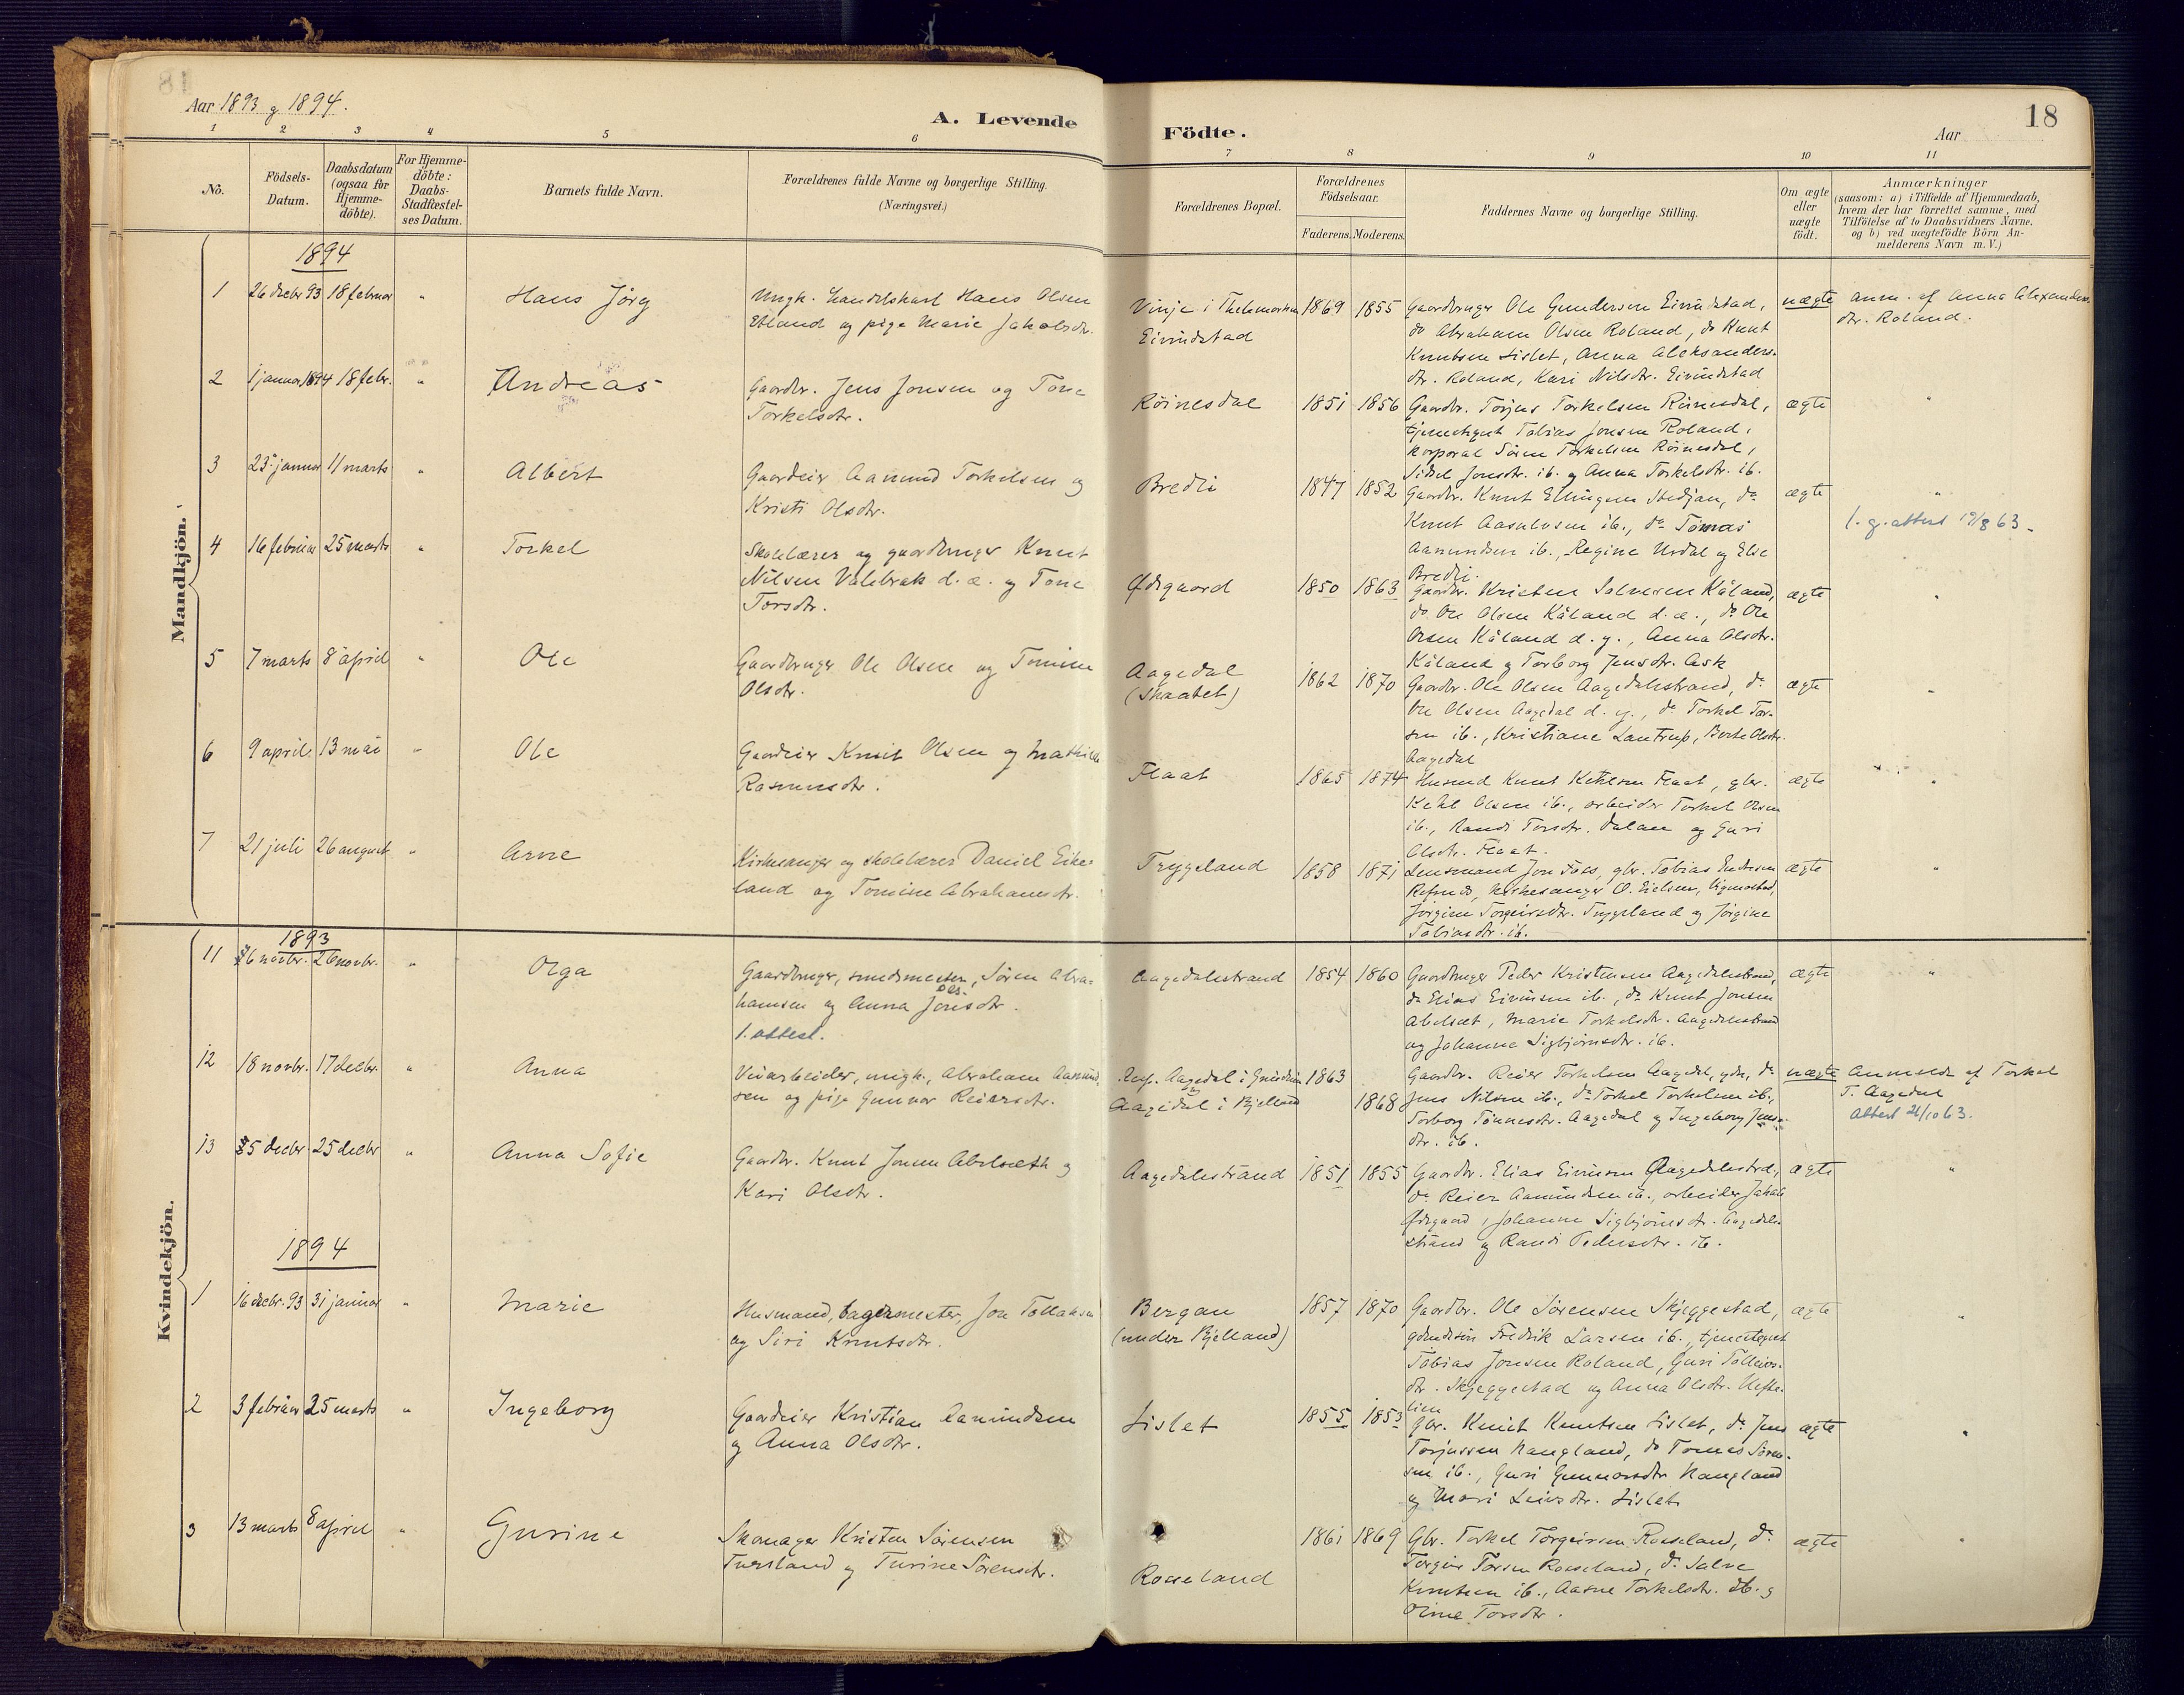 18
Aar 1893 og 1894.
A. Levende Födte.
Aar
1 2 3 4 5 6 7 8 9 10 11
No.
Födsels-
Datum.
Daabsdatum
(ogsaa for
Hjemme-
döbte).
For Hjemme-
döbte:
Daabs-
Stadfæstel-
ses Datum.
Barnets fulde Navn.
Forældrenes fulde Navne og borgerlige Stilling.
(Næringsvei.)
Forældrenes Bopæl.
Forældrenes
Födselsaar.
Faderens. Moderens.
Faddernes Navne og borgerlige Stilling.
Om ægte
eller
uægte
födt.
Anmærkninger
(saasom: a) i Tilfælde af Hjemmedaab,
hvem der har forrettet samme, med
Tilföielse af to Daabsvidners Navne.
og b) ved uægtefödte Börn An-
melderens Navn m. V.)
Mandkjön.
1894
1 26 decbr 93 18 februar " Hans Jørg
Ungk. handelskarl Hans Olsen
Etland og pige Marie Jakobsdtr.
Vinje i Thelemarken
Eivindstad
1869 1855
Gaardbruger Ole Gundersen Eivindstad,
do Abraham Olsen Roland, do Knut
Knutsen Lislet, Anna Aleksanders-
dtr. Roland, Kari Nilsdtr. Eivindstad
uægte
anm. af Anna Alexanders-
dtr. Roland.
2 1 januar 1894 18 febr. " Andreas
Gaardbr. Jens Jonsen og Tone
Torkelsdtr.
Röinesdal
1851 1856
Gaardbr. Torjus Torkelsen Röinesdal,
tjenestegut Tobias Jonsen Roland,
korporal Sören Torkelsen Röinesdal,
Sidsel Jonsdtr. ib. og Anna Torkelsdtr. ib.
ægte "
3 23 januar 11 marts " Albert
Gaardeier Aanund Torkelsen og
Kristi Olsdtr.
Bredli
1847 1852
Gaardbr. Knut Ellingsen Stedjan, do
Knut Aasulvsen ib., do Tomas
Aanundsen ib., Regine Urdal og Else
Bredli.
ægte "
l. g. attest 19/8 63.
4 16 februar 25 marts " Torkel
Skolelærer og gaardbruger Knut
Nilsen Valebrak d. æ. og Tone
Torsdtr.
Ødegaard
1850 1863
Gaardbr. Kristen Salvesen Kåland,
do Ole Olsen Kåland d. æ., do Ole
Olsen Kåland d. y., Anna Olsdtr.
Kåland og Torborg Jensdtr. Ask
ægte "
5 7 marts 8 april " Ole
Gaardbruger Ole Olsen og Tomine
Olsdtr.
Aagedal
(Skaatet)
1862 1870
Gaardbr. Ole Olsen Aagedalsstrand, do
Ole Olsen Aagedal d. y., do Torkel Tor-
sen ib., Kristiane Lantrup, Berte Olsdtr.
Aagedal
ægte "
6 9 april 13 mai " Ole
Gaardeier Knut Olsen og Mathilde
Rasmusdtr.
Flaat
1865 1874
Husmand Knut Ketilsen Flaat, gbr.
Ketil Olsen ib., arbeider Torkel Olsen
ib., Randi Torsdtr. Dalane og Guri
Olsdtr. Flaat.
ægte "
7 21 juli 26 august " Arne
Kirkesanger og skolelærer Daniel Eike-
land og Tomine Abrahamsdtr.
Trygsland
1858 1871
Lensmand Jon Foss, gbr. Tobias Endresen
Refsnes, kirkesanger O. Eielsen, Vigmostad,
Jörgine Torgeirsdtr. Trygsland og Jörgine
Tobiasdtr. ib.
ægte "
Kvindekjön.
1893
11 6 novbr. 26 novbr. " Olga
Gaardbruger, smedmester, Sören Abra-
Ols-
hamsen og Anna Jonsdtr.
1. attest.
Aagedalsstrand
1854 1860
Gaardbruger Peder Kristensen Aagedalsstrand,
do Elias Eivinsen ib., do Knut Jonsen
Abelsæt, Marie Torkelsdtr. Aagedalsstrand
og Johanne Sigbjörnsdtr. ib.
ægte "
12 18 novbr. 17 decbr. " Anna
Veiarbeider, ungk., Abraham Aanund-
sen og pige Gunvor Reiersdtr.
Resp. Aagedal i Grindeim
og
Aagedal i Bjelland
1863
1868
Gaardbr. Reier Torkelsen Aagedal, gdr., do
Jens Nilsen ib., do Torkel Torkelsen ib.,
Torborg Tönnesdtr. Aagedal og Ingeborg Jens-
dtr. ib.
uægte
Anmeldt af Torkel
T. Aagedal
Attest 21/10 63.
13 5 decbr 25 decbr " Anna Sofie
Gaardbr. Knut Jonsen Abelsæth og
Kari Olsdtr.
Aagedalsstrand
1851 1855
Gaardbr. Elias Eivinsen Aagedalsstrd.,
do Reier Aanundsen ib., arbeider Jakob
Ødegaard, Johanne Sigbjörnsdtr. Aagedals-
strand og Randi Pedersdtr. ib.
ægte "
1894
1 16 decbr. 93 31 januar " Marie
Husmand, bagermester, Jon Tollaksen
og Siri Knutsdtr.
Bergan
(under Bjelland)
1857 1870
Gaardbr. Ole Sörensen Skjeggestad,
Fredrik Larsen ib., tjenestegut
Tobias Jonsen Roland, Guri Tolleivs-
dtr. Skjeggestad og Anna Olsdtr. Hefte-
lien
ægte "
2 3 februar 25 marts " Ingeborg
Gaardeier Kristian Aamundsen
og Anna Olsdtr.
Lislet
1855 1853
Gbr. Knut Knutsen Lislet, do Jens
Torjussen Haugland, do Tomas Sören-
sen ib., Guri Gunnarsdtr Haugland
og Mari Leivsdtr. Lislet
ægte "
3 13 marts 8 april " Gurine
Skomager Kristen Sörensen
Tversland og Turine Sörensdtr.
Rosseland
1861 1869
Gbr. Torkel Torgeirsen Rosseland, do
Torgeir Torsen Rosseland, do Salve
Knutsen ib., Aasne Torkelsdtr. ib. og
Oline Torsdtr.
ægte "